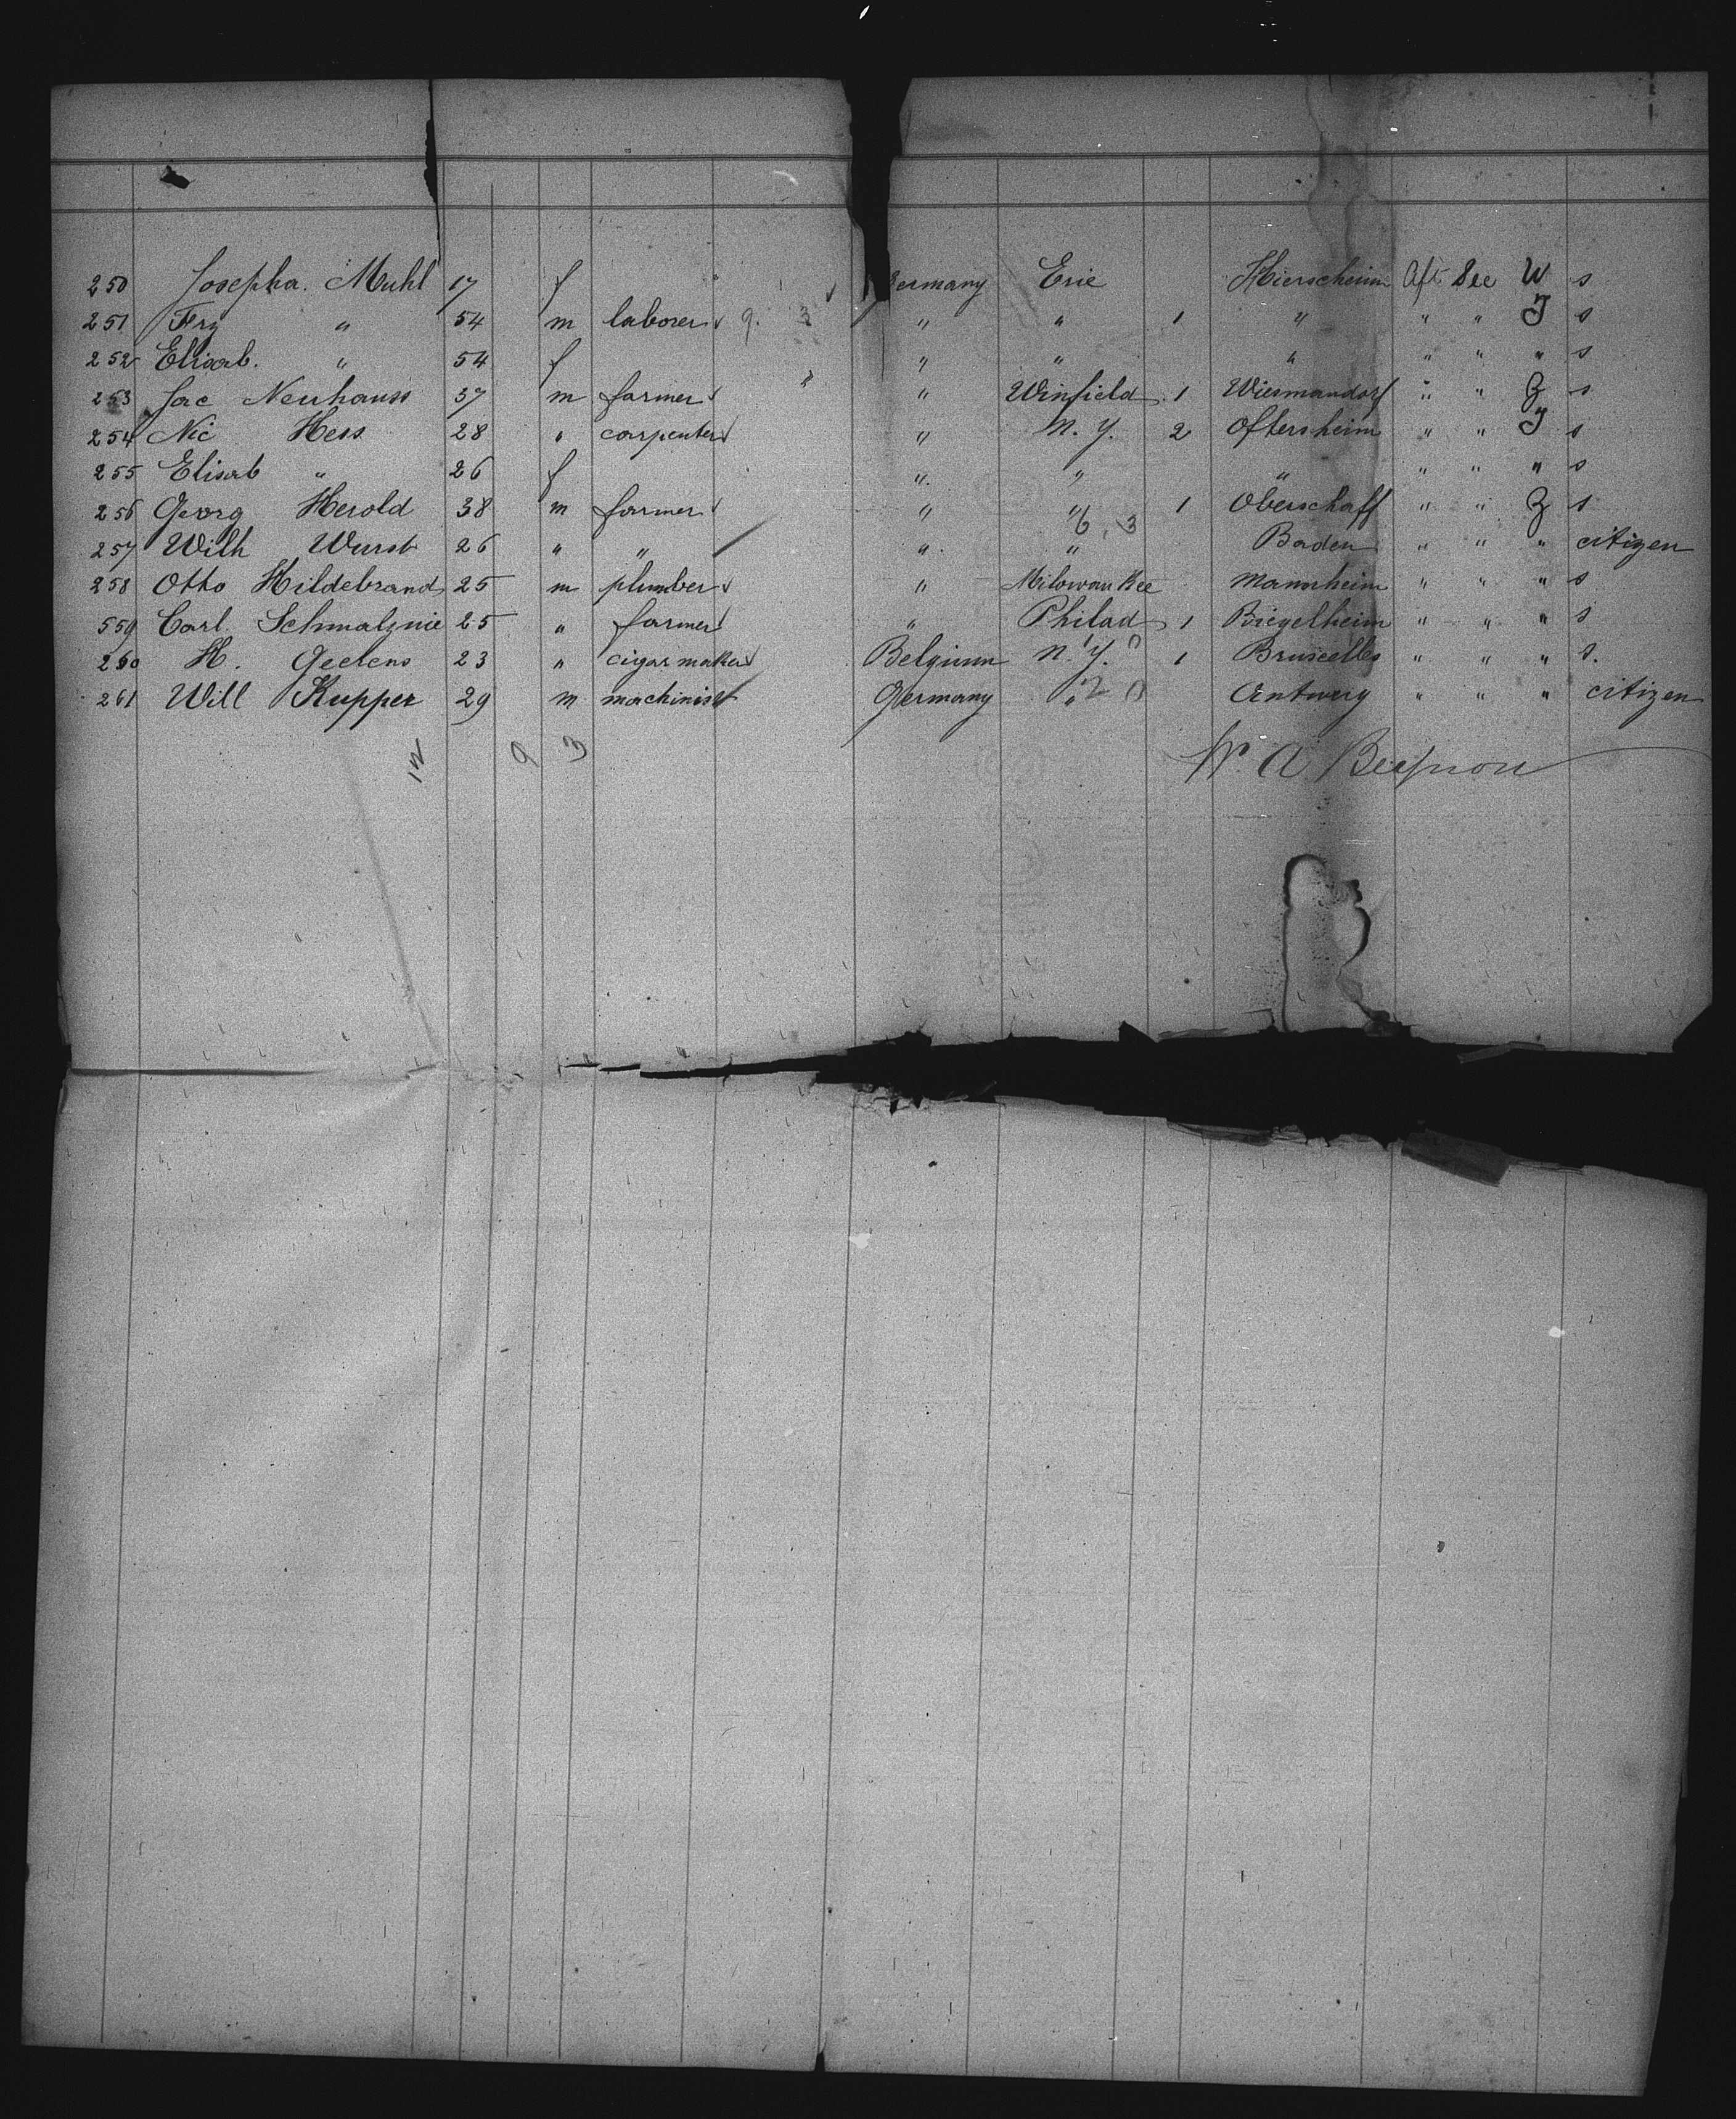 250 Josepha. Muhl 17 f Germany Erie Hierscheim Aft See W s
251 Frz " 54 m laborer 9. 3 " " 1 " " " J s
252 Elisab. " 54 f " " " " " " s
253 Jac Neuhauss 37 m farmer " Winfield 1 Wiesmandorf " " Z s
254 Nic Hess 28 " carpenter " N. Y. 2 Oftersheim " " J s
255 Elisab " 26 f " " " " " " s
256 Georg Herold 38 m farmer " " 1 Oberschaff " " Z s
257 Wilh Wurst 26 " " " " Baden " " " citizen
258 Otto Hildebrand 25 m plumber " Milowaukee Mannheim " " " s
559 Carl. Schmalznie 25 " farmer " Philad 1 Biegelheim " " " s
260 H. Geerens 23 " cigar maker Belgium N. Y. 1 Bruscelles " " " s.
261 Will Kupper 29 m machinist Germany " Antwerp " " " citizen
12 9 3
W. A.